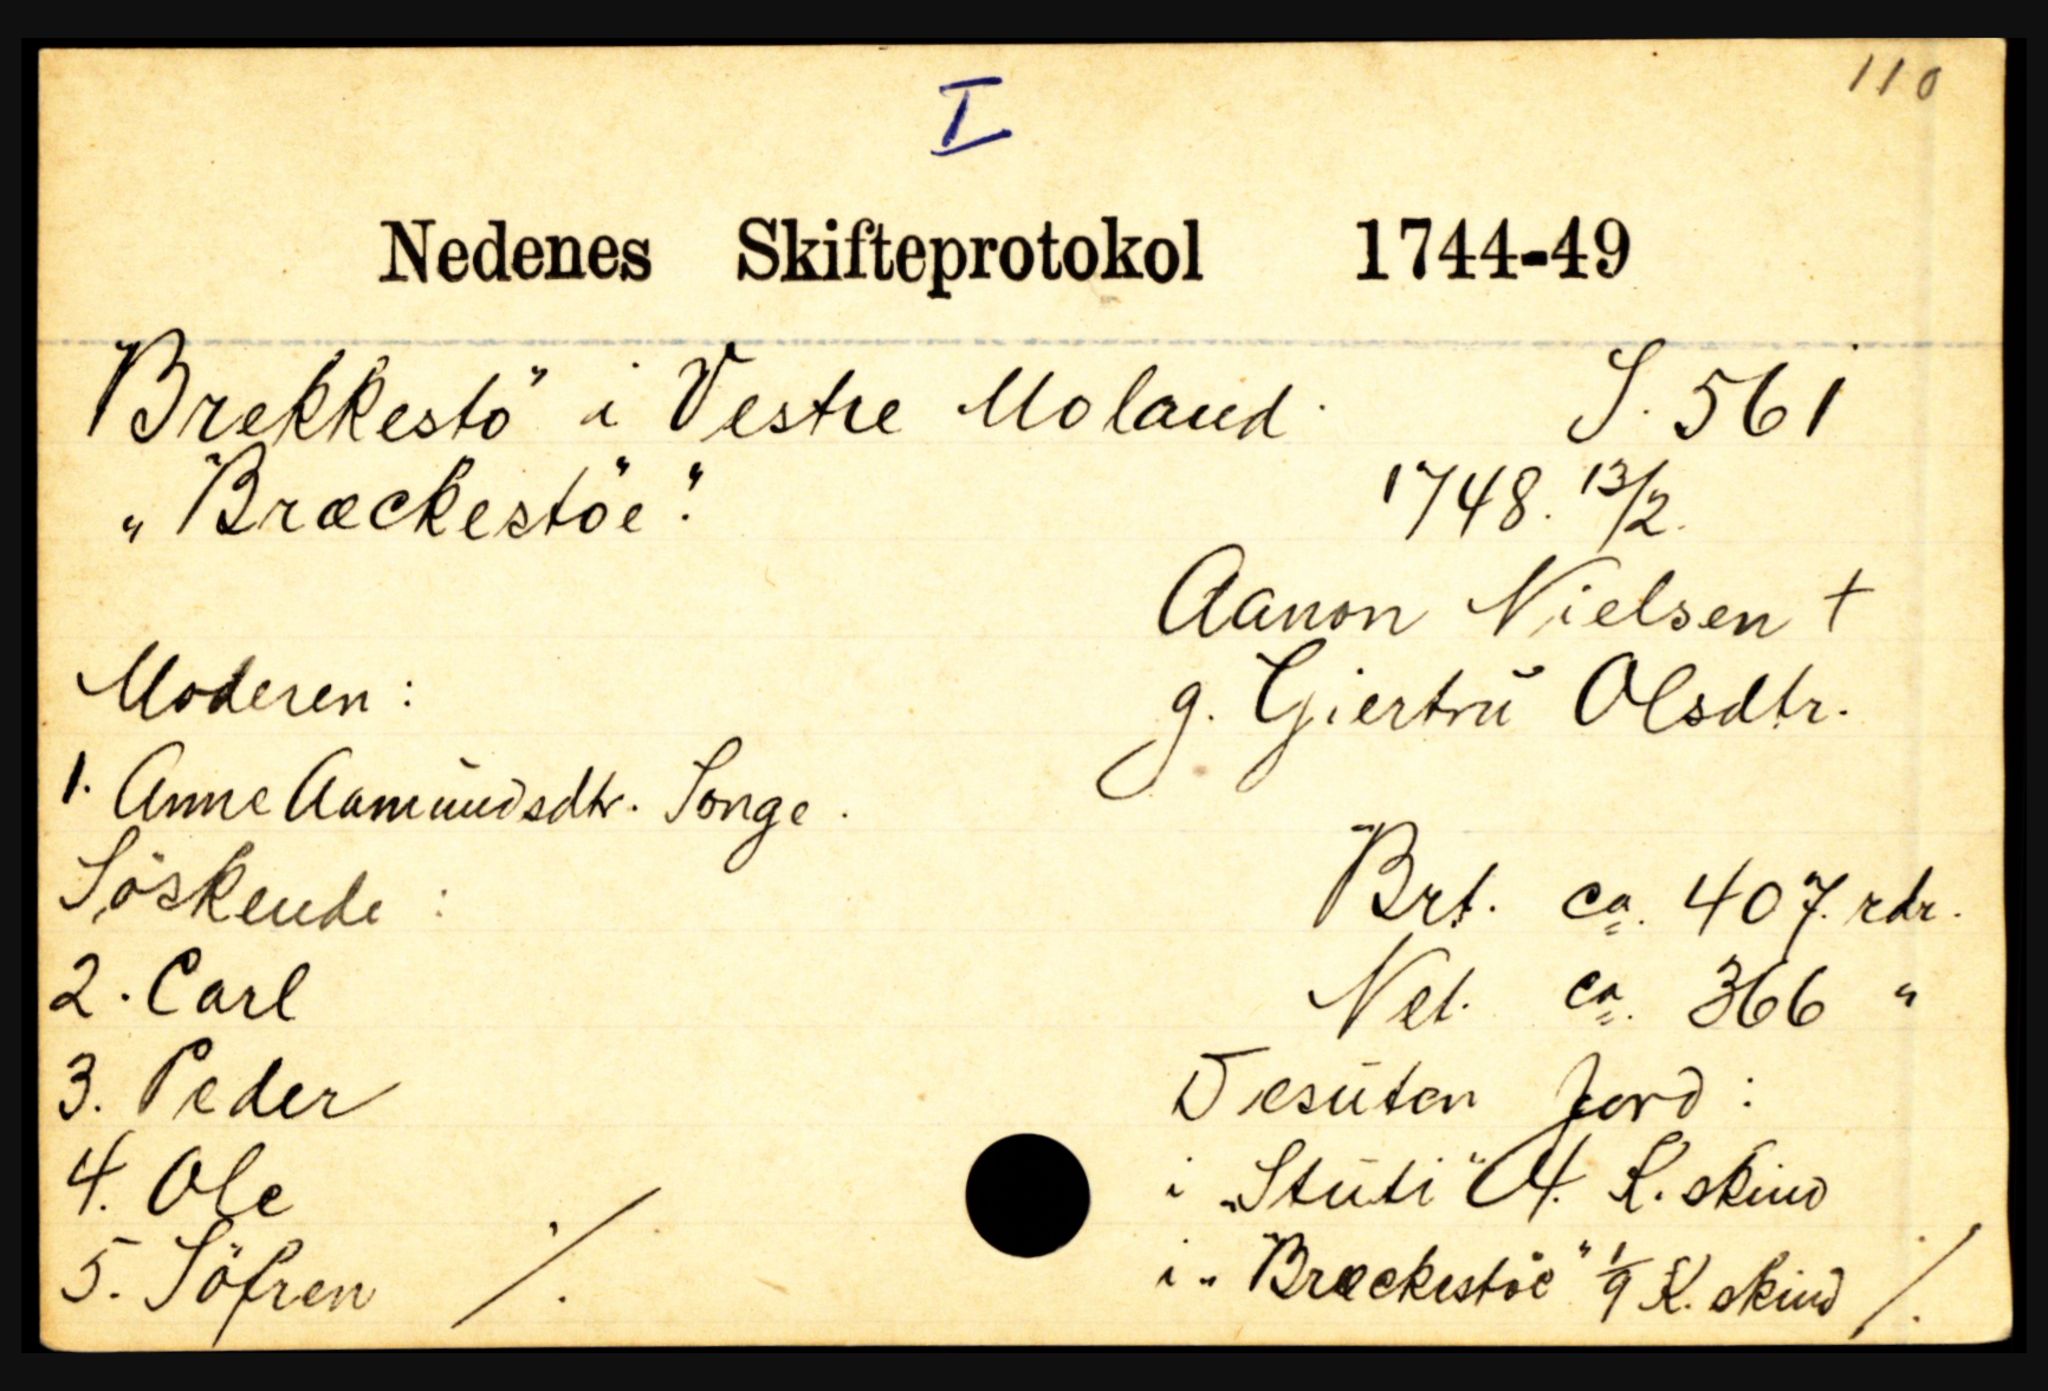 110
I
Nedenes Skifteprotokol 1744-49
Brekkestö i Vestre Moland. S. 561
„Bræckestöe". 1748. 13/2.
Aanon Nielsen +
g. Gjertrū Olsdtr.
Moderen:
1. Anne Aamūndsdtr. Songe.
Söskende:
2. Carl
3. Peder
4. Ole
5. Söfren ./.
Brt. ca. 407. rdr.
Net. ca. 366 "
Desūten Jord:
i „Stūti" 4. K. skind
i „Bræckestöe" 1/9 K. skind ./.